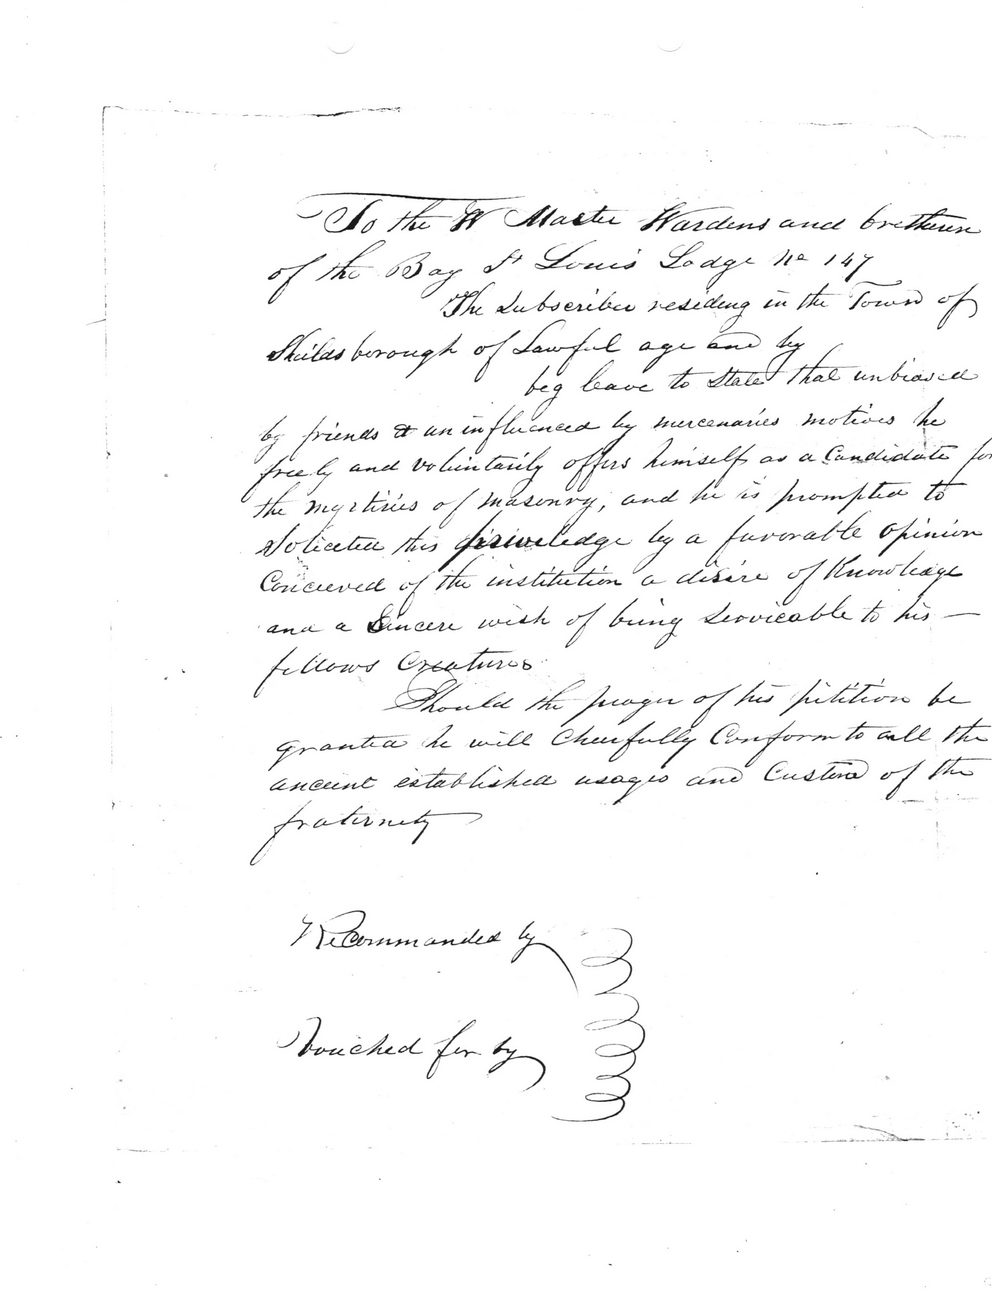 To the W Master Wardens and bretheren
of the Bay St Louis Lodge No 147
The Subscriber residing in the Town of
Shieldsborough of Lawful age and by
beg leave to State that unbiased
by friends & uninfluenced by mercenaries motives he
freely and voluntarily offers himself as a Candidate for
the mysteries of masonry, and he is prompted to
Solicited this priviledge by a favorable opinion
Conceived of the institution a desire of Knowledge
and a Sincere wish of being Serviceable to his —
fellows Creatures
Should the prayer of his petition be
granted he will cheerfully Conform to all the
ancient established usages and Customs of the
fraternity
Recommanded by
Vouched for by